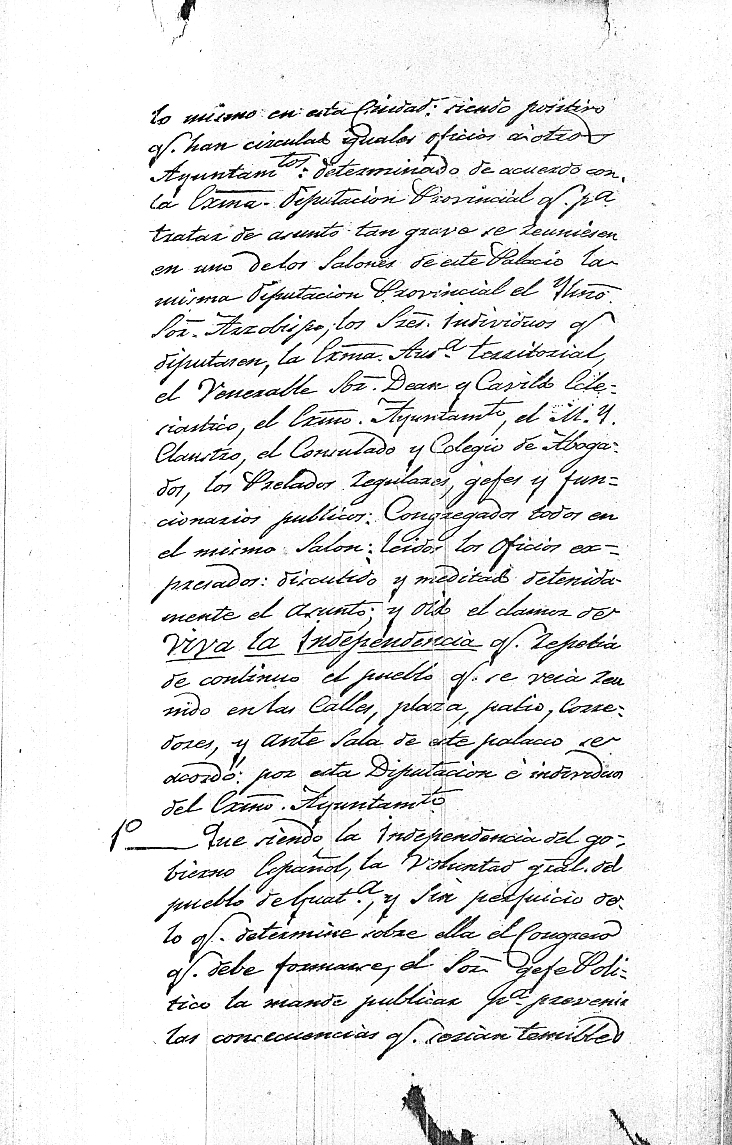 lo mismo en esta Ciudad: siendo positivo
q.e han circulad iguales oficios à otros
Ayuntam.tos: determinado de acuerdo con
la Exma. Diputacion Provincial q.e p.a
tratar de asunto tan grave se reuniesen
en uno delos Salones de este Palacio la
misma Diputacion Provincial el Yllmo.
Sor. Arzobispo, los Sres. Individuos q.e
diputasen, la Exma. Aud.a territorial,
el Venerable Sor. Dean y Cavildo Ecle=
ciastico, el Exmo. Ayuntam.to, el M. Y.
Claustro, el Consulado y Colegio de Aboga=
dos, los Prelados regulares, gefes y fun=
cionarios publicos: Congregados todos en
el mismo Salon: leidos los oficios ex=
presados: discutido y meditad detenida
mente el asunto; y oido el clamor de
Viva la Independencia q.e repetia
de continuo el pueblo q.e se veia reu
nido en las Calles, plaza, patio, Corre=
dores, y ante sala de este palacio se
acordó: por esta Diputacion é individuos
del Exmo. Ayuntam.to
1.o Que siendo la Independencia del go=
bierno Español, la Voluntad gral. del
pueblo de Guat.a, y sin perjuicio de
lo q.e determine sobre ella el Congreso
q.e debe formarse, el Sor. Gefe Poli=
tico la mande publicar p.a prevenir
las consecuencias q.e serian temibles